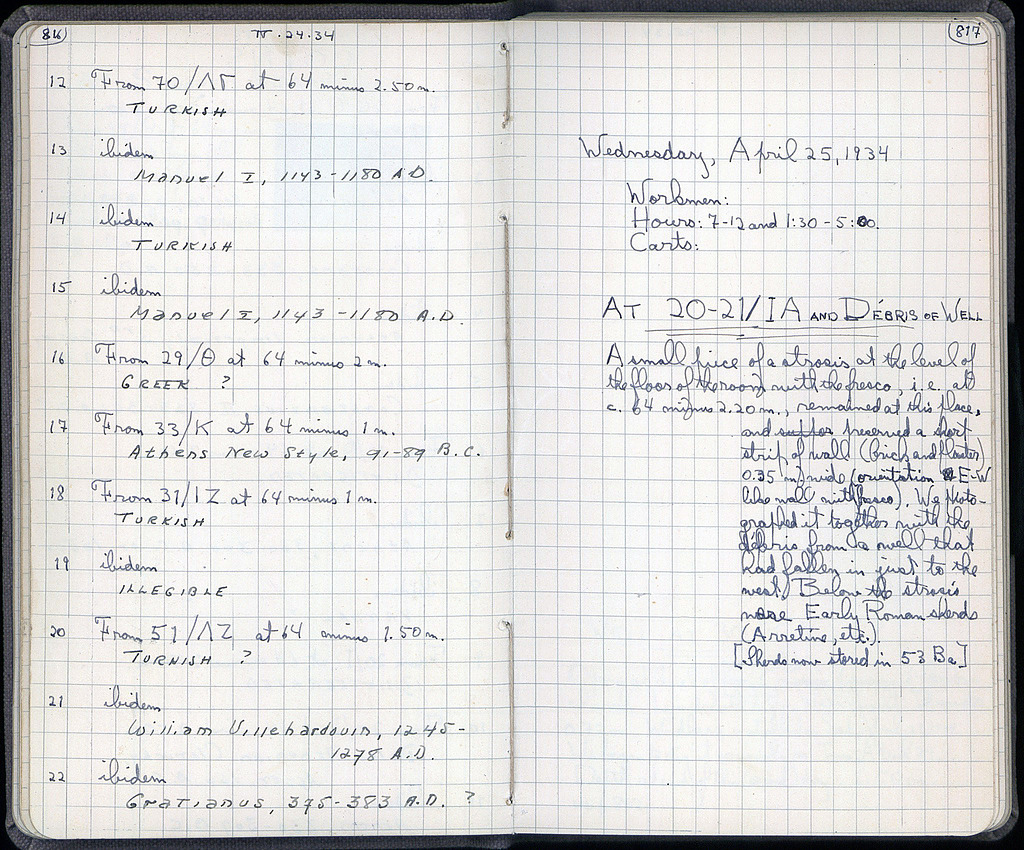 816
IV.24.34
12 From 70/ΛΓ at 64 minus 2.50 m.
TURKISH
13 ibidem
Manuel I, 1143-1180 A.D.
14 ibidem
TURKISH
15 ibidem
Manuel I, 1143-1180 A.D.
16 From 29/Θ at 64 minus 2 m.
GREEK ?
17 From 33/K at 64 minus 1 m.
Athens New Style, 91-89 B.C.
18 From 31/IZ at 64 minus 1 m.
TURKISH
19 ibidem
ILLEGIBLE
20 From 51/ΛZ at 64 minus 1.50 m.
TURNISH ?
21 ibidem
William Villehardouin, 1245-
1278 A.D.
22 ibidem
Gratianus, 375-383 A.D. ?
817
Wednesday, April 25, 1934
Workmen:
Hours: 7-12 and 1:30-5:00.
Carts:
AT 20-21/IA AND DÉBRIS OF WELL
A small piece of a strosis at the level of
the floor of the room with the fresco, i.e. at
c. 64 minus 2.20 m., remained at this place,
and preserved a short
strip of wall (brick and plaster)
0.35 m. wide (orientation E-W
like wall with fresco). We photo-
graphed it together with the
débris from a well that
had fallen in just to the
west. Below the strosis
were Early Roman sherds
(Arretine, etc.).
[Sherds now stored in 53 Ba]